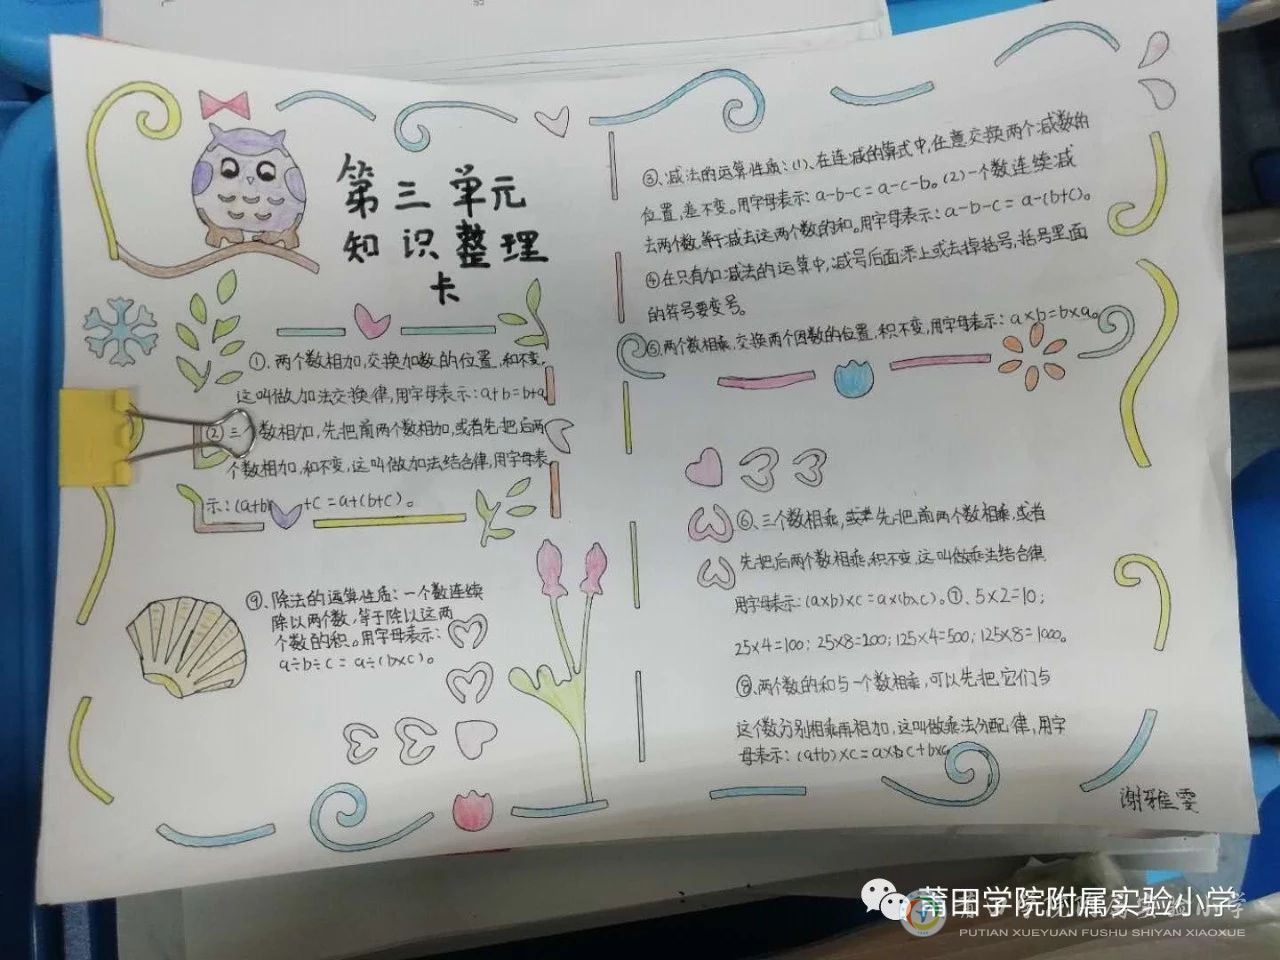 第三单元
知识整理
卡
①、两个数相加,交换加数的位置,和不变,
这叫做加法交换律,用字母表示:a+b=b+a
②三个数相加,先把前两个数相加,或者先把后两
个数相加,和不变,这叫做加法结合律,用字母表
示:(a+b)+c=a+(b+c)。
⑨、除法的运算性质:一个数连续
除以两个数,等于除以这两
个数的积。用字母表示:
a÷b÷c=a÷(b×c)。
③、减法的运算性质:(1)、在连减的算式中,任意交换两个减数的
位置,差不变。用字母表示:a-b-c=a-c-b。(2)一个数连续减
去两个数,等于减去这两个数的和。用字母表示:a-b-c=a-(b+c)。
④在只有加减法的运算中,减号后面添上或去掉括号,括号里面
的符号要变号。
⑤两个数相乘,交换两个因数的位置,积不变,用字母表示:a×b=b×a。
⑥、三个数相乘,或者先把前两个数相乘,或者
先把后两个数相乘,积不变,这叫做乘法结合律
用字母表示:(a×b)×c=a×(b×c)。⑦、5×2=10;
25×4=100;25×8=200;125×4=500;125×8=1000。
⑧、两个数的和与一个数相乘,可以先把它们与
这个数分别相乘再相加,这叫做乘法分配律,用字
母表示:(a+b)×c=a×c+b×c
谢雅雯
莆田学院附属实验小学
PUTIAN XUEYUAN FUSHU SHIYAN XIAOXUE